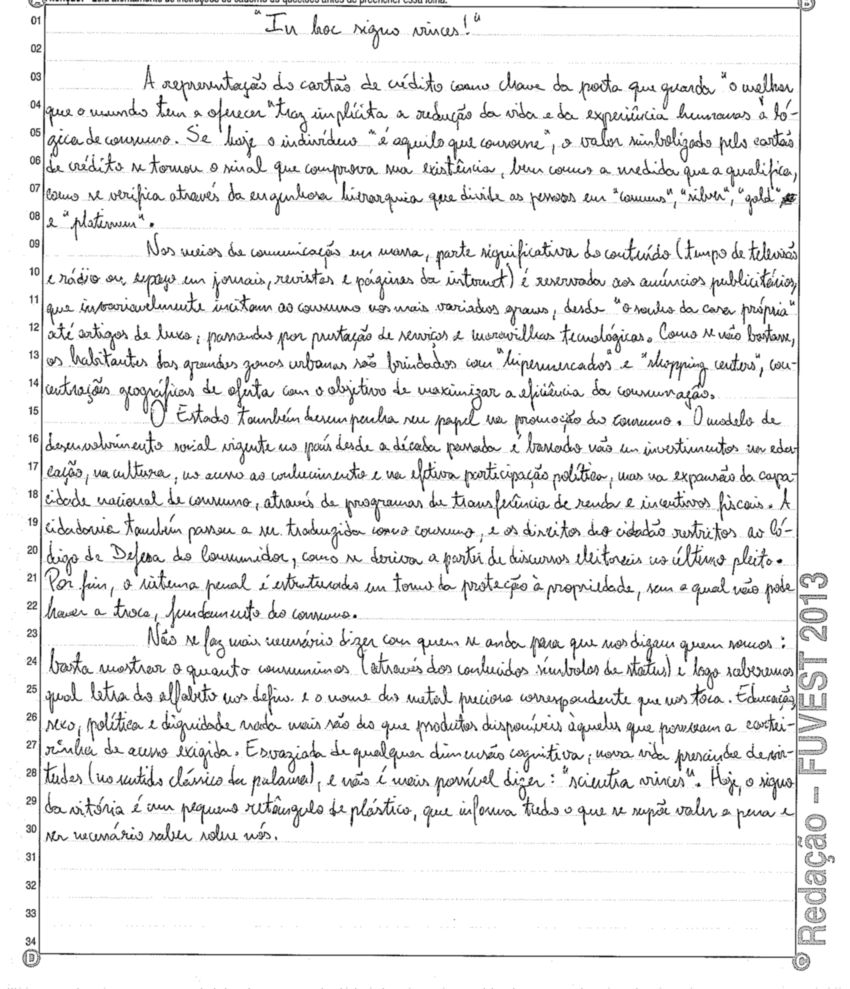 01 "In hoc signo vinces!"
02
03 A representação do cartão de crédito como chave da porta que guarda "o melhor
04 que o mundo tem a oferecer" traz implícita a redução da vida e da experiência humanas à ló-
05 gica de consumo. Se hoje o indivíduo "é aquilo que consome", o valor simbolizado pelo cartão
06 de crédito se tornou o sinal que comprova sua existência, bem como a medida que a qualifica,
07 como se verifica através da engenhosa hierarquia que divide as pessoas em "comuns", "silver", "gold"
08 e "platinum".
09 Nos meios de comunicação em massa, parte significativa do conteúdo (tempo de televisão
10 e rádio ou espaço em jornais, revistas e páginas da internet) é reservada aos anúncios publicitários,
11 que invariavelmente incitam ao consumo nos mais variados graus, desde "o sonho da casa própria"
12 até artigos de luxo, passando por prestação de serviços e maravilhas tecnológicas. Como se não bastasse,
13 os habitantes das grandes zonas urbanas são brindados com "hipermercados" e "shopping centers", con-
14 centrações geográficas de oferta com o objetivo de maximizar a eficiência da consumação.
15 O Estado também desempenha seu papel na promoção do consumo. O modelo de
16 desenvolvimento social vigente no país desde a década passada é baseado não em investimentos na edu-
17 cação, na cultura, no acesso ao conhecimento e na efetiva participação política, mas na expansão da capa-
18 cidade nacional de consumo, através de programas de transferência de renda e incentivos fiscais. A
19 cidadania também passou a ser traduzida como consumo, e os direitos do cidadão restritos ao Có-
20 digo de Defesa do Consumidor, como se deriva a partir de discursos eleitoreis no último pleito.
21 Por fim, o sistema penal é estruturado em torno da proteção à propriedade, sem a qual não pode
22 haver a troca, fundamento do consumo.
23 Não se faz mais necessário dizer com quem se anda para que nos digam quem somos:
24 basta mostrar o quanto consumimos (através dos conhecidos símbolos de status) e logo saberemos
25 qual letra do alfabeto nos define e o nome do metal precioso correspondente que nos toca. Educação,
26 sexo, política e dignidade nada mais são do que produtos disponíveis àqueles que possuam a cartei-
27 rinha de acesso exigida. Esvaziada de qualquer dimensão cognitiva, nossa vida prescinde de vir-
28 tudes (no sentido clássico da palavra), e não é mais possível dizer: "scientia vinces". Hoje, o signo
29 da vitória é um pequeno retângulo de plástico, que informa tudo o que se supõe valer a pena e
30 ser necessário saber sobre nós.
31
32
33
34
Redação – FUVEST 2013